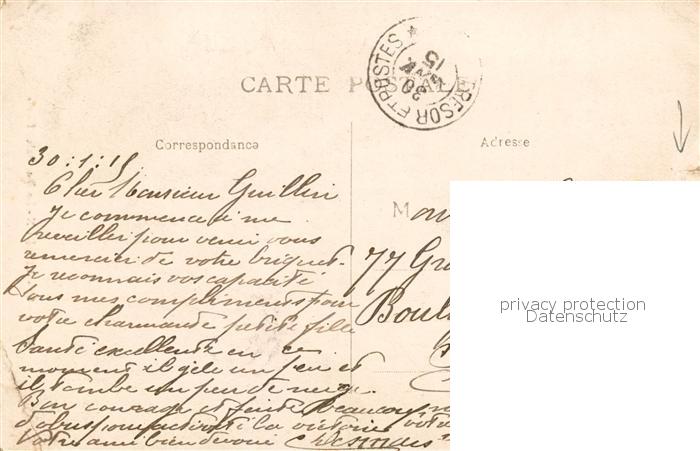 CARTE POSTALE
TRESOR ET POSTES
30 JANV 15
Correspondance
Adresse
30:1:15
Cher Monsieur Guillin
Je commence à me
reveiller pour venir vous
remercier de votre briquet.
Je reconnais vos capacité
Tous mes compliments pour
votre charmande petite fille
Santé excellente en ce
moment il gèle un peu et
il tombe un peu de neige.
Bon courage et faite beaucoup
d'obus pour activé la victoire votre
Votre ami bien devoué
M
77 Gr
Boul
privacy protection
Datenschutz